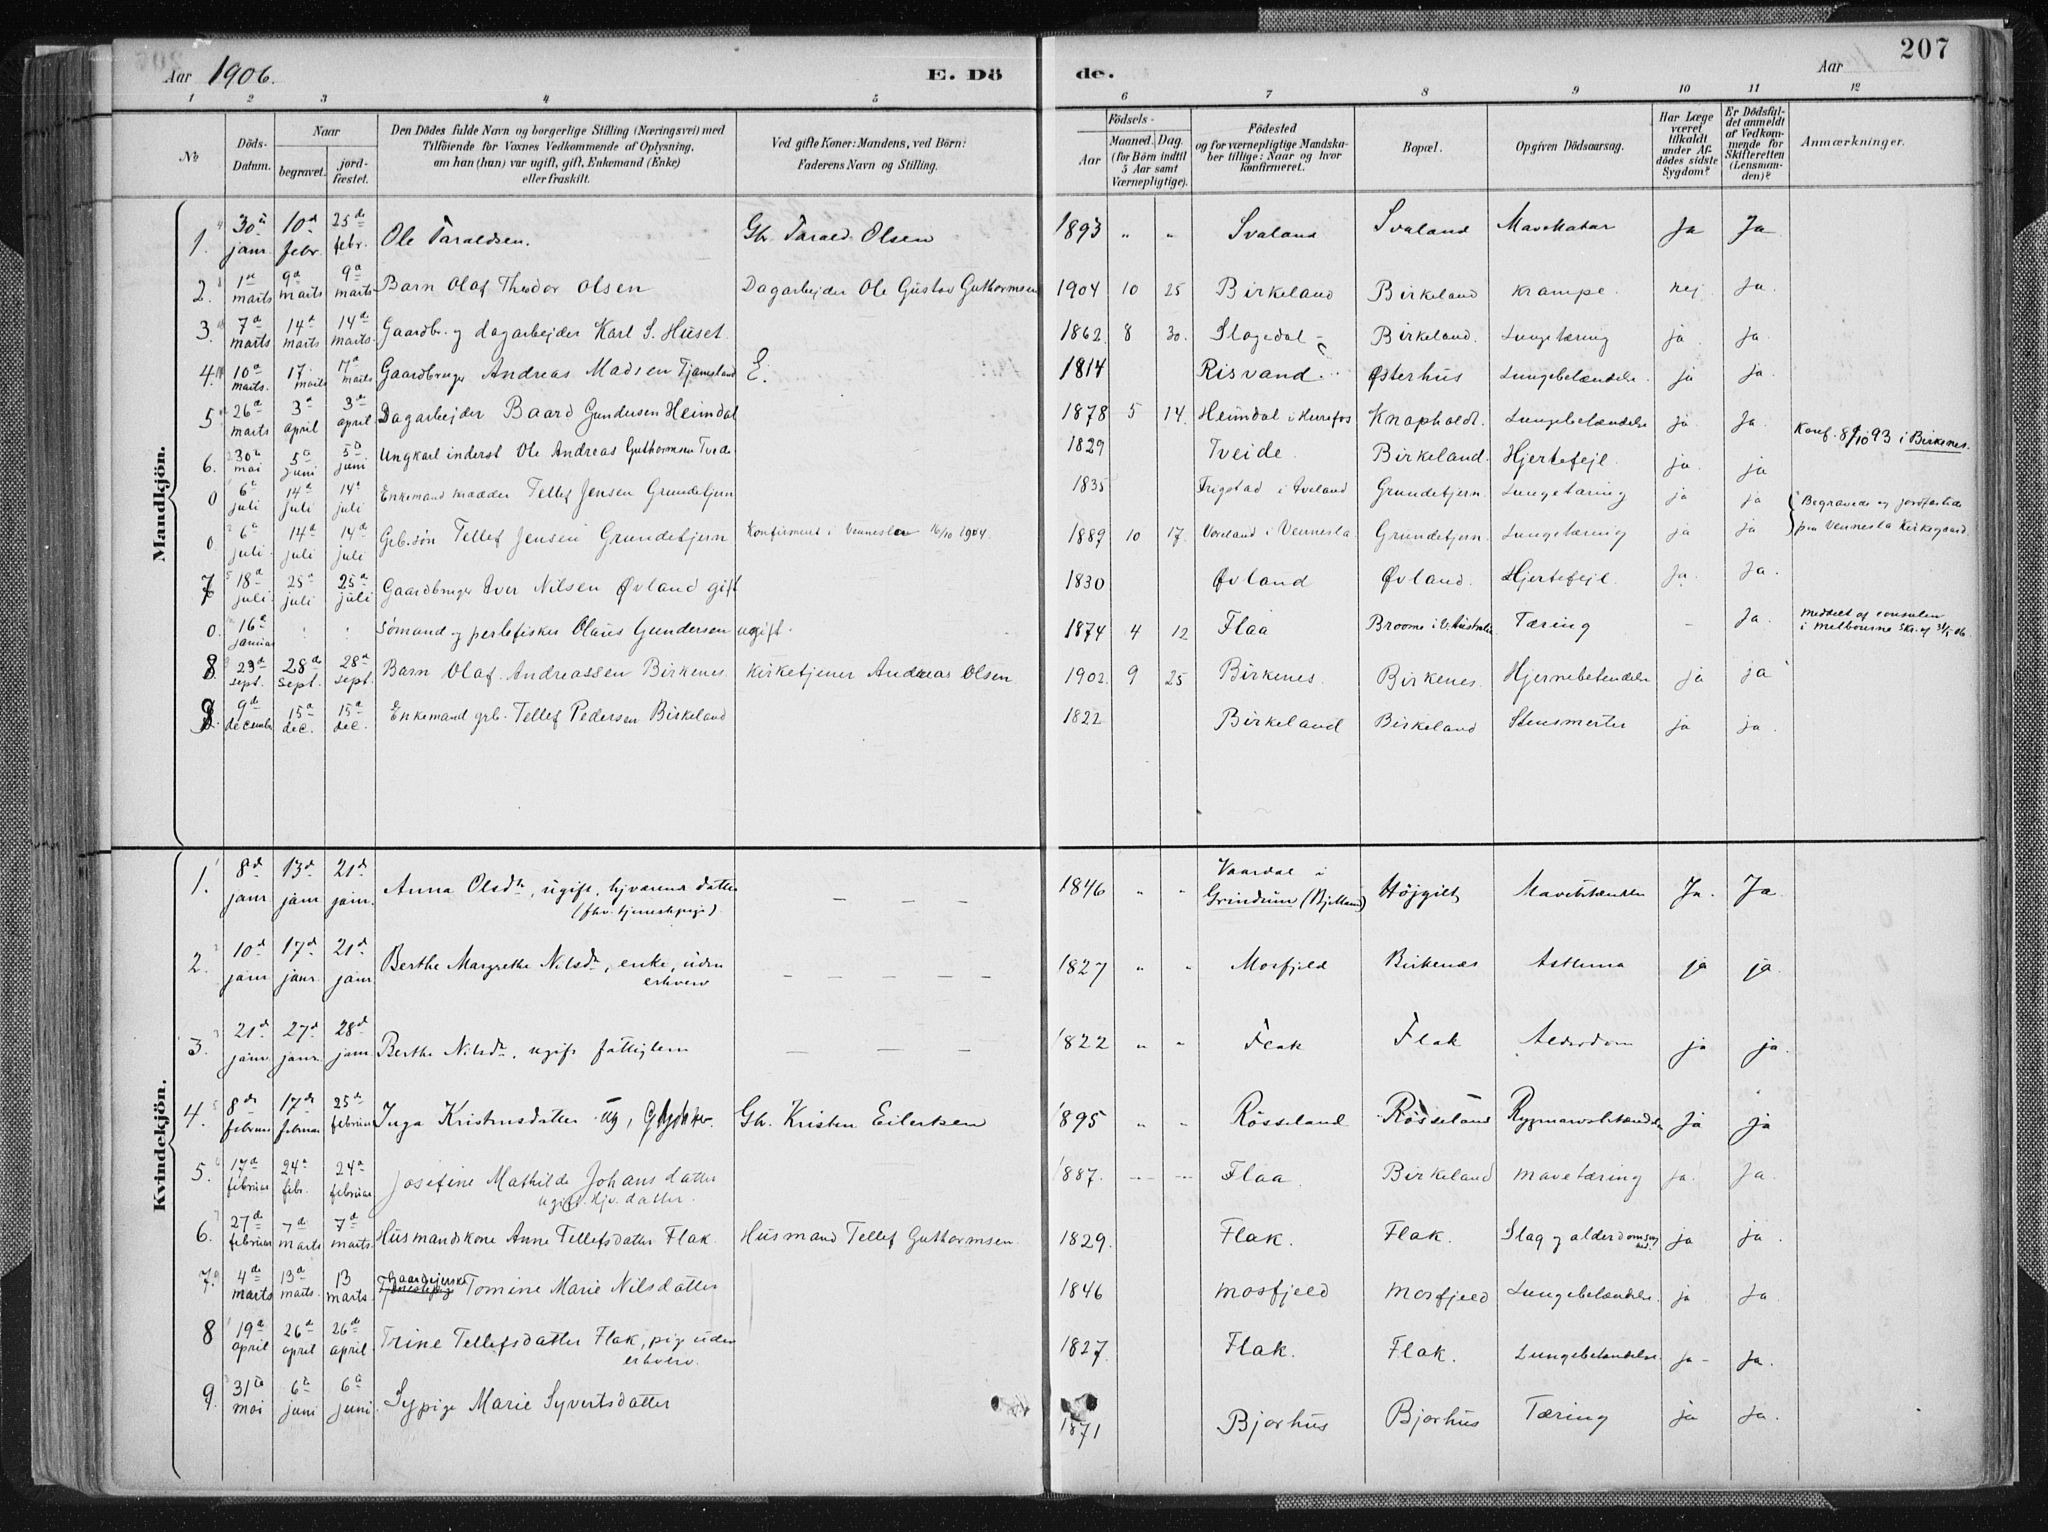 207
Aar 1906. E. Dö de. Aar
1 2 3 4 5 6 7 8 9 10 11 12
No Döds-Datum. Naar begravet. jordfæstet. Den Dödes fulde Navn og borgerlige Stilling (Næringsvei) med Tilföiende for Voxnes Vedkommende af Oplysning, om han (hun) var ugift, gift, Enkemand (Enke) eller fraskilt. Ved gifte Koner: Mandens, ved Börn: Faderens Navn og Stilling. Födsels- Aar Maaned. Dag. (for Börn indtil 5 Aar samt Værnepligtige). Födested og for værnepligtige Mandskaber tillige: Naar og hvor konfirmeret. Bopæl. Opgiven Dödsaarsag. Har Læge været tilkaldt under Afdödes sidste Sygdom? Er Dödsfaldet anmeldt af Vedkommende for Skifteretten (Lensmanden)? Anmærkninger.
Mandkjön.
1. 30te janr. 10de febr. 25de febr. Ole Taraldsen. Gb. Tarald Olsen 1893 " " Svaland Svaland Mavekatar Ja Ja
2. 1ste marts 9de marts 9de marts Barn Olaf Theodor Olsen Dagarbejder Ole Gustav Guttormsen 1904 10 25 Birkeland Birkeland Krampe. nej Ja.
3. 7de marts 14de marts 14de marts. Gaardbr. og dagarbejder Karl S. Huset. 1862. 8 30. Slogedal Birkeland. Lungetæring ja. ja.
4. 10de marts. 17. marts 17de marts Gaardbruger Andreas Madsen Tjamsland E. 1814 Risvand. Østerhus Lungebetændelse. ja ja.
5 26de marts 3de april 3de april Dagarbejder Baard Gundersen Heimdal 1878 5 14. Heimdal i Herefos Knapholdt. Lungebetændelse ja. Ja. Konf. 8/10 93 i Birkenes.
6. 30te mai 5te juni 5te juni Ungkarl inderst Ole Andreas Guttormsen Tveide 1829 Tveide. Birkeland. Hjertefejl. ja. ja
0 6te juli 14de juli 14de juli Enkemand Tellef Jensen Grundetjern 1835 Frigstad i Aveland Grundetjern. Lungetæring ja ja Begravede og jordfæstede
0 6te juli. 14de juli 14de juli Grb. søn Tellef Jensen Grundetjern Konfirmeret i Vennesla 16/10 1904. 1889 10 17. Voreland i Vennesla Grundetjern. Lungetæring ja ja paa Vennesla Kirkegaard.
7 18de juli. 25de juli 25de juli Gaardbruger Iver Nilsen Øvland gift 1830 Øvland Øvland. Hjertefejl. Ja. Ja.
0. 16de januar Sømand og perlefisker Olaus Gundersen ugift. 1874 4 12 Flaa Broome i V. Australia Tæring - Ja. meddelt af consulen i Melbourne
8. 23de sept. 28de sept. 28de sept. Barn Olaf Andreassen Birkenes. Kirketjener Andreas Olsen 1902. 9 25 Birkenes. Birkenes. Hjernebetendelse ja ja
9. 9de decembr 15de dec. 15de dec. Enkemand grb. Tellef Pedersen Birkeland 1822 Birkeland Birkeland Stensmerter ja ja.
Kvindekjön.
1. 8de janr 13de janr 21de janr. Anna Olsdtr, ugift, hjværende datter (fhv. tjenestepige). - - - 1846 " " Vaardal i Grindum (Bjelland) Højgilt Mavebetændelse Ja. Ja.
2. 10de janr 17de janr. 21de janr Berthe Margrethe Nilsdtr, enke, uden erhverv - - - - - 1827 " " Mosfjeld Birkenes Asthma ja ja.
3. 21de janr. 27de janr. 28de janr. Berthe Nilsdtr, ugift fattiglem - - - - 1822 " " Flak Flak Alderdom ja ja.
4. 8de februar 17de februar 25de februar Inga Kristensdatter ug, Gb. Kristen Eilertsen 1895 " " Røsseland Røsseland Rygmarvsbetændelse Ja ja
5. 17de februar 24de febr. 24de februar Josefine Mathilde Johansdatter ugift. hjv. datter. 1887. Flaa. Birkeland mavetæring ja. Ja.
6. 27de februar 7de marts 7de marts. Husmandskone Anne Tellefsdatter Flak. Husmand Tellef Guttormsen. 1829. Flak. Flak. Slag og alderdomssvaghed. ja ja.
7. 4de marts 13de marts. 13 marts. Gaardejerske Tomine Marie Nilsdatter 1846 Mosfjeld Mosfjeld Lungebetændelse. ja Ja.
8 19de april 26de april 26de april. Trine Tellefsdatter Flak, pige uden erhverv. 1827. Flak. Flak. Lungebetændelse. ja- Ja.
9. 31te mai 6te juni 6te juni Sypige Marie Syvertsdatter 1871 Bjorhus Bjorhus Tæring ja Ja.